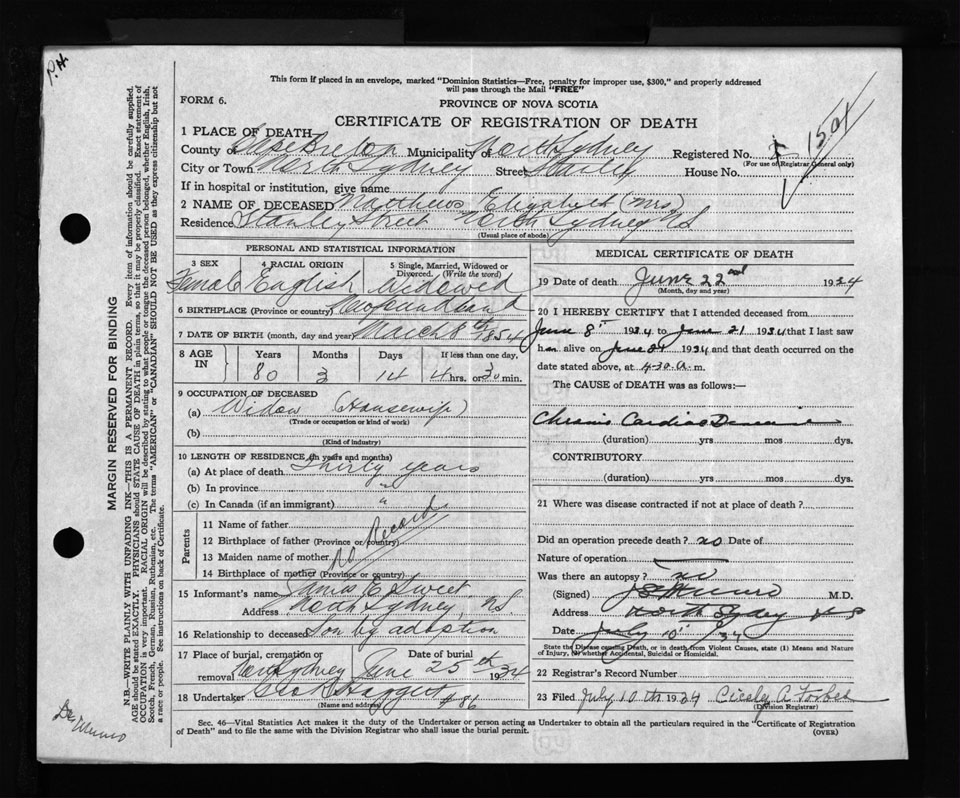 P.H.
This form if placed in an envelope, marked "Dominion Statistics—Free, penalty for improper use, $300," and properly addressed
will pass through the Mail "FREE"
FORM 6.
PROVINCE OF NOVA SCOTIA
CERTIFICATE OF REGISTRATION OF DEATH
1 PLACE OF DEATH
County of Cape Breton Municipality of North Sydney Registered No.
(For use of Registrar General only)
City or Town North Sydney Street Stanley House No.
If in hospital or institution, give name
2 NAME OF DECEASED Matthews Elizabeth (Mrs)
Residence Stanley Street North Sydney NS
(Usual place of abode)
PERSONAL AND STATISTICAL INFORMATION
3 SEX 4 RACIAL ORIGIN 5 Single, Married, Widowed or Divorced. (Write the word)
Female English Widowed
6 BIRTHPLACE (Province or country) Newfoundland
7 DATE OF BIRTH (month, day and year) March 8th 1854
8 AGE IN Years Months Days If less than one day,
80 3 14 4 hrs. or 30 min.
9 OCCUPATION OF DECEASED
(a) Widow (Housewife)
(Trade or occupation or kind of work)
(b)
(Kind of industry)
10 LENGTH OF RESIDENCE (In years and months)
(a) At place of death Thirty years
(b) In province "
(c) In Canada (if an immigrant) "
Parents
11 Name of father
12 Birthplace of father (Province or country)
13 Maiden name of mother
14 Birthplace of mother (Province or country)
No Record
15 Informant's name James E Sweet
Address North Sydney, NS
16 Relationship to deceased Son by adoption
17 Place of burial, cremation or removal Date of burial
North Sydney June 25th 1934
18 Undertaker Geo #86
(Name and address)
MEDICAL CERTIFICATE OF DEATH
19 Date of death June 22nd 1934
(Month, day and year)
20 I HEREBY CERTIFY that I attended deceased from
June 8" 1934 to June 21 1934 that I last saw
her alive on June 21 1934 and that death occurred on the
date stated above, at 4-30 a. m.
The CAUSE OF DEATH was as follows:—
Chronic Cardiac Disease
(duration) yrs mos dys.
CONTRIBUTORY
(duration) yrs mos dys.
21 Where was disease contracted if not at place of death?
Did an operation precede death? no Date of
Nature of operation
Was there an autopsy? no
(Signed) Munro M.D.
Address North Sydney NS
Date July 10" /34
State the Disease causing Death, or in death from Violent Causes, state (1) Means and Nature
of Injury, (2) whether Accidental, Suicidal or Homicidal.
22 Registrar's Record Number
23 Filed July 10th 1934 Cicely A Forbes
(Division Registrar)
Sec. 46—Vital Statistics Act makes it the duty of the Undertaker or person acting as Undertaker to obtain all the particulars required in the "Certificate of Registration
of Death" and to file the same with the Division Registrar who shall issue the burial permit.
(OVER)
MARGIN RESERVED FOR BINDING
N.B.—WRITE PLAINLY WITH UNFADING INK—THIS IS A PERMANENT RECORD. Every item of information should be carefully supplied.
AGE should be stated EXACTLY. PHYSICIANS should STATE CAUSE OF DEATH in plain terms, so that it may be properly classified. Exact statement of
OCCUPATION is very important. RACIAL ORIGIN will be described by stating to what people or tongue the deceased person belonged, whether English, Irish,
Scotch, French, German, Russian, Ruthenian, etc. The terms "AMERICAN" or "CANADIAN" SHOULD NOT BE USED as they express citizenship but not
a race or people. See instructions on back of Certificate.
Dr Munro